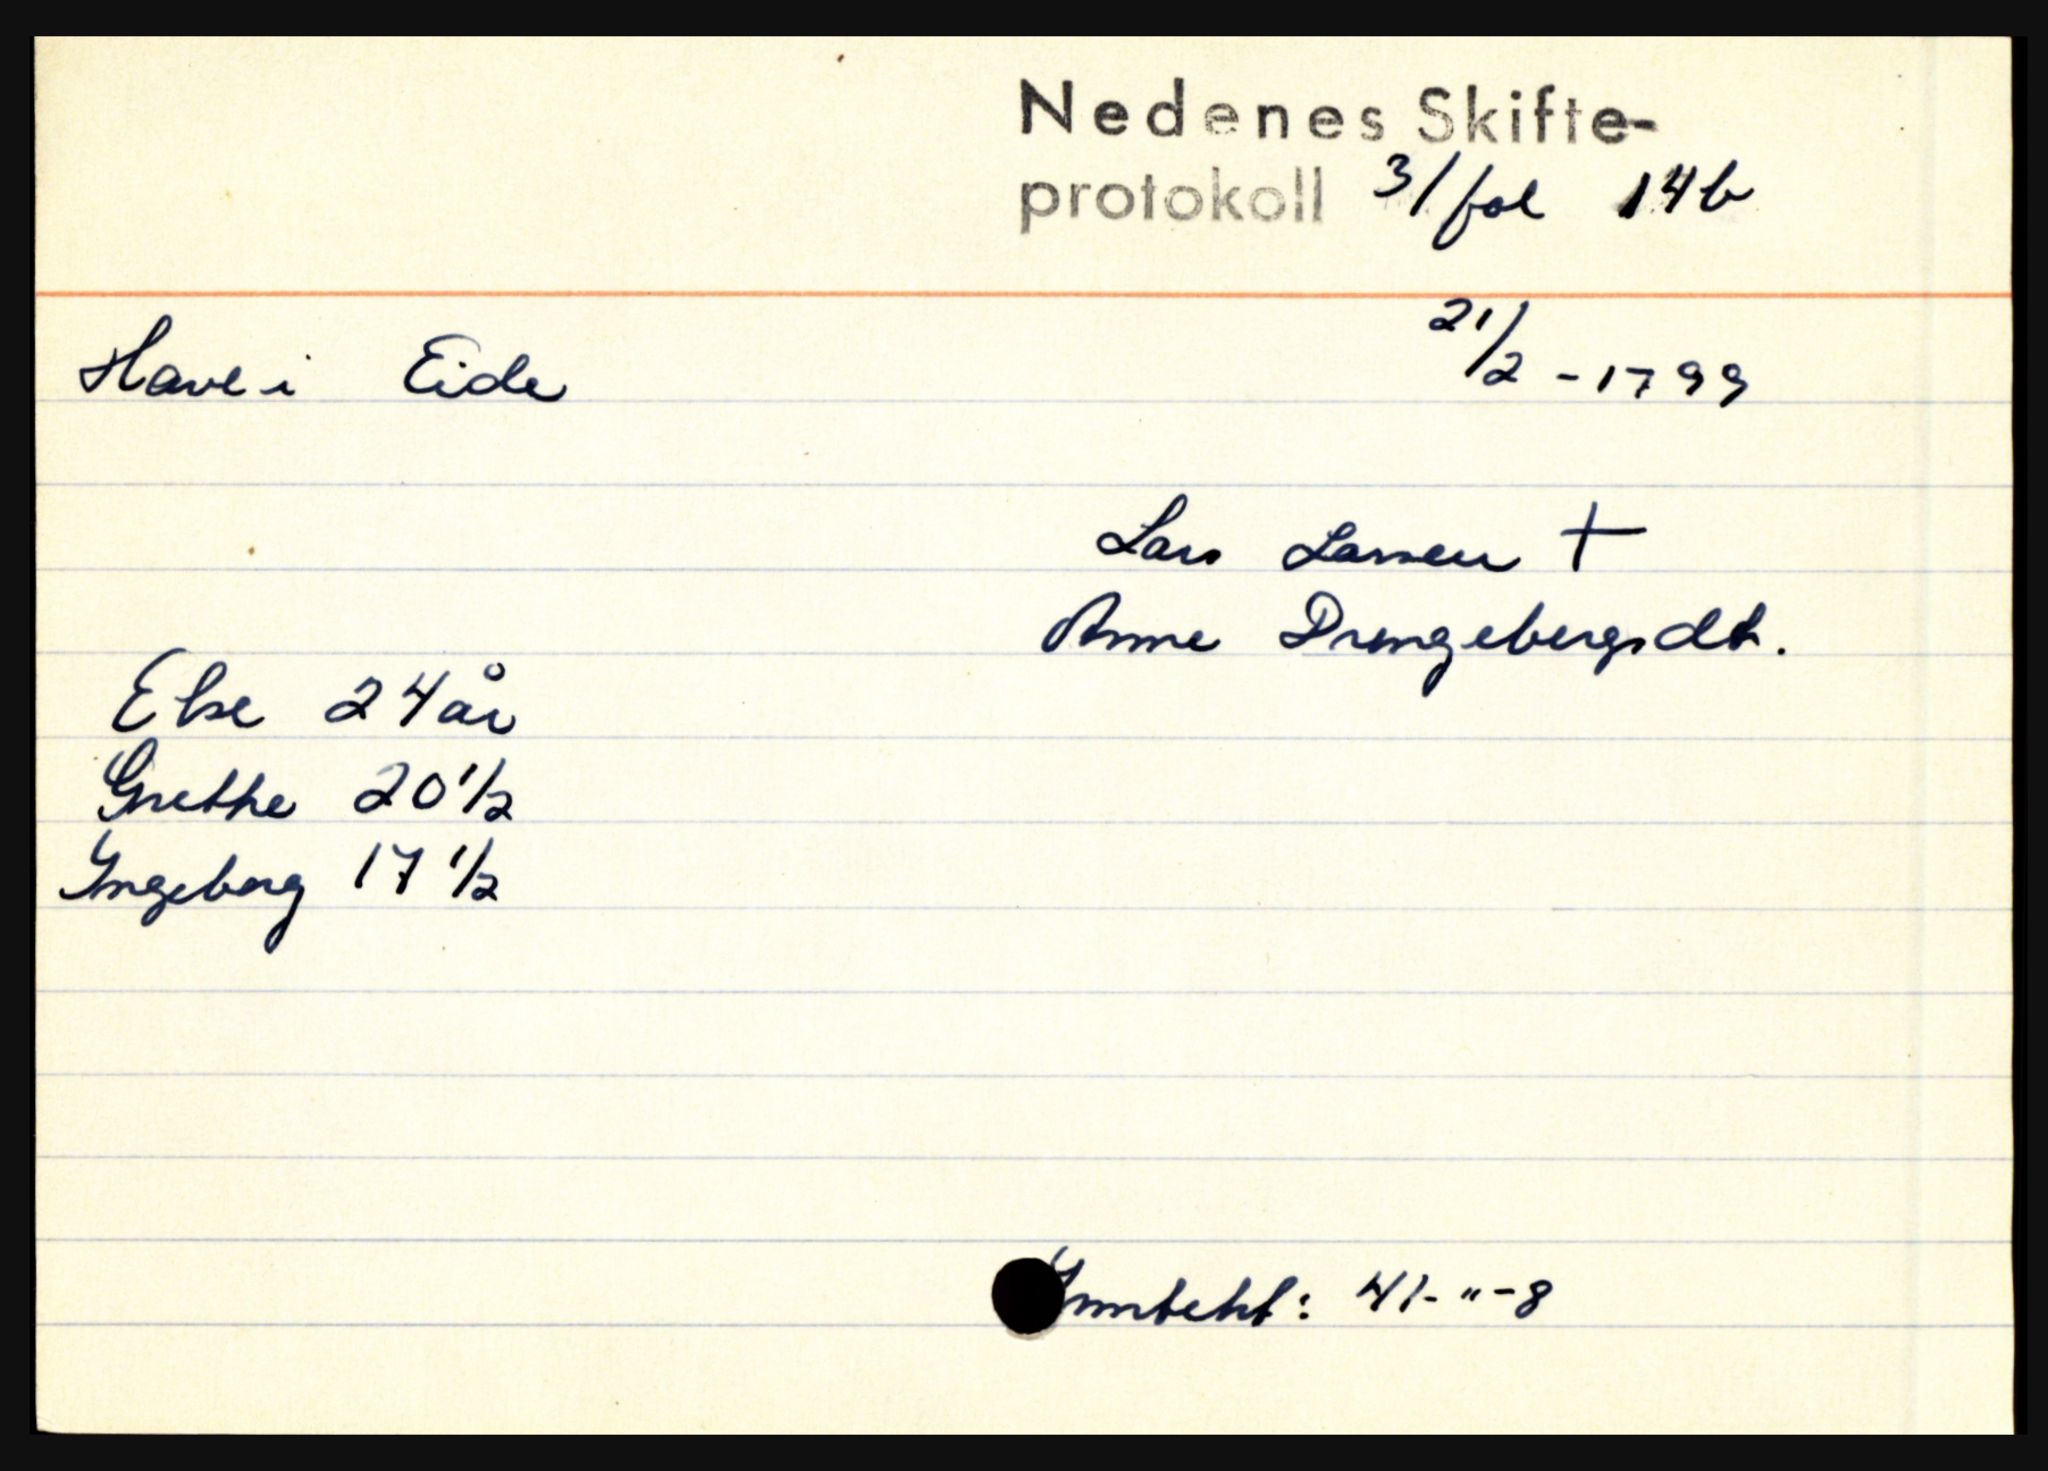 Nedenes Skifte-
protokoll 3/fol 14b
Have i Eide
21/2 - 1799
Lars Larsen +
Anne Drengebergsdt.
Else 24 år
Grethe 20 1/2
Yngeborg 17 1/2
Ynntekt: 41-"-8